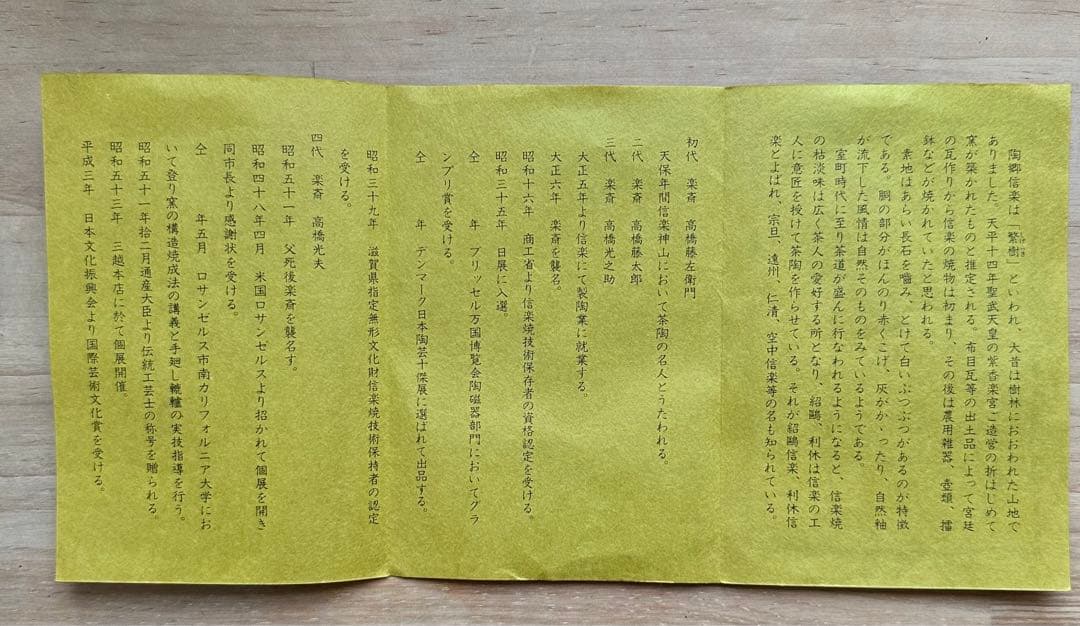 陶郷信楽は「繁樹」といわれ、大昔は樹林におおわれた山地で
ありました。天平十四年聖武天皇の紫香楽宮ご造営の折はじめて
窯が築かれたものと推定される。布目瓦等の出土品によって宮廷
の瓦作りから信楽の焼物は初まり、その後は農用雑器、壺類、擂
鉢などが焼かれていたと思われる。
素地はあらい長石を噛み、とけて白いぶつぶつがあるのが特徴
である。胴の部分がほんのり赤くこげ、灰がかゝったり、自然釉
が流下した風情は自然そのものをみているようである。
室町時代に至り茶道が盛んに行なわれるようになると、信楽焼
の枯淡味は広く茶人の愛好する所となり、紹鷗、利休は信楽の工
人に意匠を授けて茶陶を作らせている。それが紹鷗信楽、利休信
楽とよばれ、宗旦、遠州、仁清、空中信楽等の名も知られている。
初代 楽斎 高橋藤左衛門
天保年間信楽神山において茶陶の名人とうたわれる。
二代 楽斎 高橋藤太郎
三代 楽斎 高橋光之助
大正五年より信楽にて製陶業に就業する。
大正六年 楽斎を襲名。
昭和十六年 商工省より信楽焼技術保存者の資格認定を受ける。
昭和三十五年 日展に入選。
仝 年 ブリッセル万国博覧会陶磁器部門においてグラ
ンプリ賞を受ける。
仝 年 デンマーク日本陶芸十傑展に選ばれて出品する。
昭和三十九年 滋賀県指定無形文化財信楽焼技術保持者の認定
を受ける。
四代 楽斎 高橋光夫
昭和五十一年 父死後楽斎を襲名す。
昭和四十八年四月 米国ロサンゼルスより招かれて個展を開き
同市長より感謝状を受ける。
仝 年五月 ロサンゼルス市南カリフォルニア大学にお
いて登り窯の構造焼成法の講義と手廻し轆轤の実技指導を行う。
昭和五十一年拾二月通産大臣より伝統工芸士の称号を贈られる。
昭和五十三年 三越本店に於て個展開催。
平成三年 日本文化振興会より国際芸術文化賞を受ける。